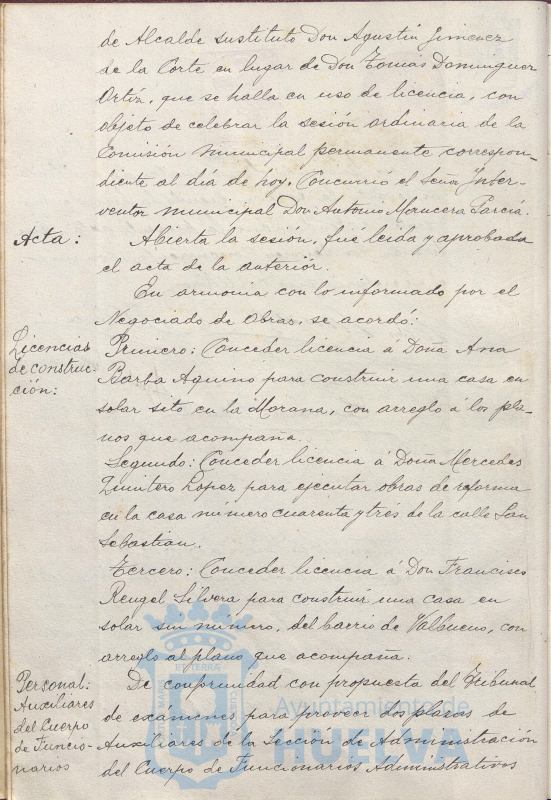 de Alcalde sustituto Don Agustín Jimenez
de la Corte en lugar de Don Tomás Dominguez
Ortíz, que se halla en uso de licencia, con
objeto de celebrar la sesión ordinaria de la
Comisión municipal permanente correspon-
diente al día de hoy. Concurrió el Señor Inter-
ventor municipal Don Antonio Mancera García.
Acta:
Abierta la sesión, fué leida y aprobada
el acta de la anterior.
En armonia con lo informado por el
Negociado de Obras, se acordó:
Licencias
de construc-
ción:
Primero: Conceder licencia á Doña Ana
Barba Aquino para construir una casa en
solar sito en la Morana, con arreglo á los pla-
nos que acompaña.
Segundo: Conceder licencia á Doña Mercedes
Quintero Lopez para ejecutar obras de reforma
en la casa número cuarenta y tres de la calle San
Sebastian.
Tercero: Conceder licencia á Don Francisco
Rengel Silvera para construir una casa en
solar sin número, del barrio de Valbueno, con
arreglo al plano que acompaña.
Personal:
Auxiliares
del Cuerpo
de Funcio-
narios
De conformidad con propuesta del Tribunal
de exámenes para proveer dos plazas de
Auxiliares de la Sección de Administración
del Cuerpo de Funcionarios Administrativos
Ayuntamiento de
HUELVA